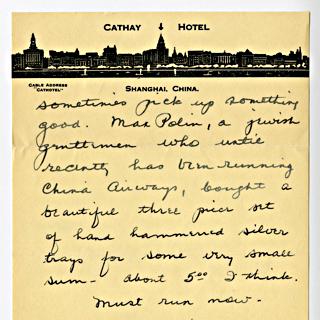 CATHAY HOTEL
CABLE ADDRESS
"CATHOTEL"
SHANGHAI, CHINA.
sometimes pick up something
good. Max Polin, a jewish
gentleman who until
recently has been running
China Airways, bought a
beautiful three pier set
of hand hammered silver
trays for some very small
sum - about 5.00 I think.
Must run now -